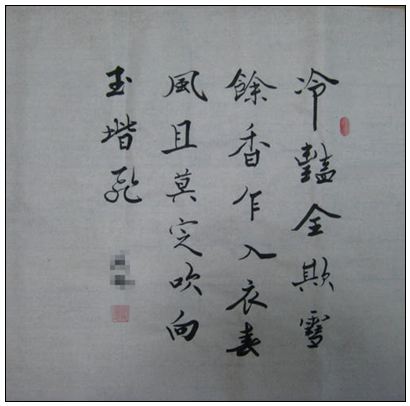 冷豔全欺雪
餘香乍入衣春
風且莫定吹向
玉堦飛